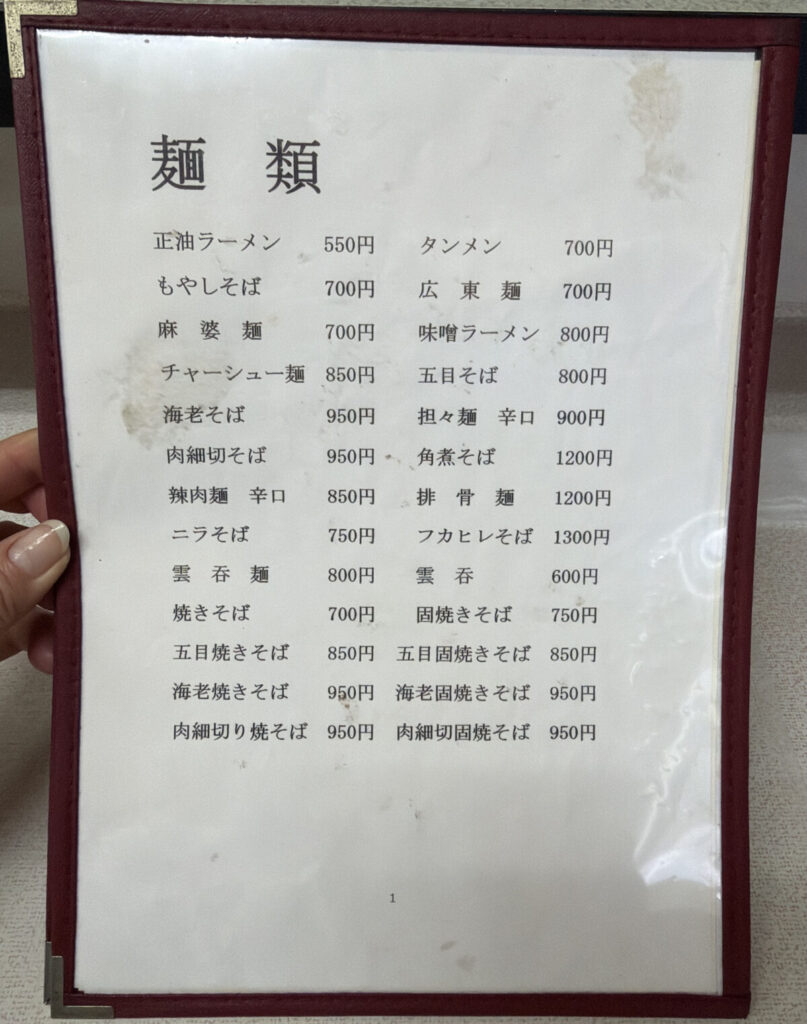 麺　類
正油ラーメン　550円　タンメン　700円
もやしそば　700円　広　東　麺　700円
麻　婆　麺　700円　味噌ラーメン　800円
チャーシュー麺　850円　五目そば　800円
海老そば　950円　担々麺　辛口　900円
肉細切そば　950円　角煮そば　1200円
辣肉麺　辛口　850円　排　骨　麺　1200円
ニラそば　750円　フカヒレそば　1300円
雲　呑　麺　800円　雲　呑　600円
焼きそば　700円　固焼きそば　750円
五目焼きそば　850円　五目固焼きそば　850円
海老焼きそば　950円　海老固焼きそば　950円
肉細切り焼そば　950円　肉細切固焼そば　950円
1